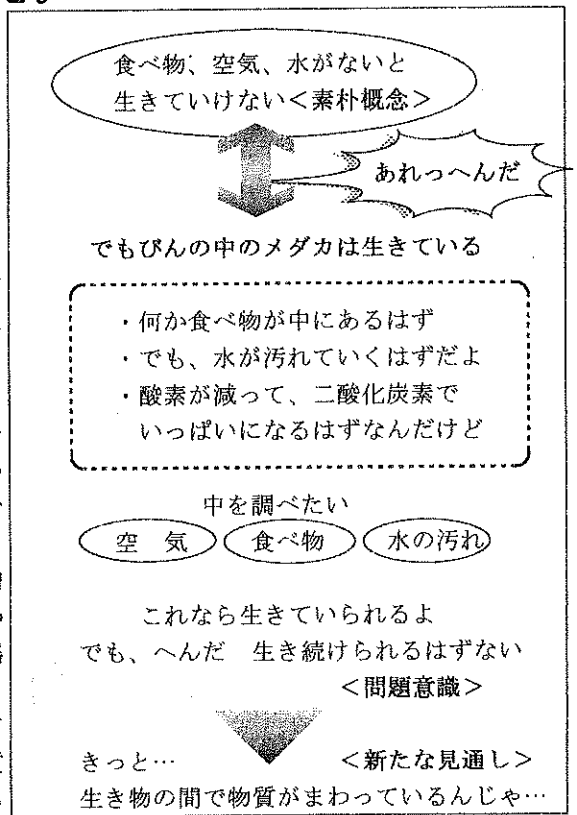 食べ物、空気、水がないと
生きていけない<素朴概念>
あれっへんだ
でもびんの中のメダカは生きている
・何か食べ物が中にあるはず
・でも、水が汚れていくはずだよ
・酸素が減って、二酸化炭素で
いっぱいになるはずなんだけど
中を調べたい
空　気　食べ物　水の汚れ
これなら生きていられるよ
でも、へんだ　生き続けられるはずない
<問題意識>
きっと…　<新たな見通し>
生き物の間で物質がまわっているんじゃ…